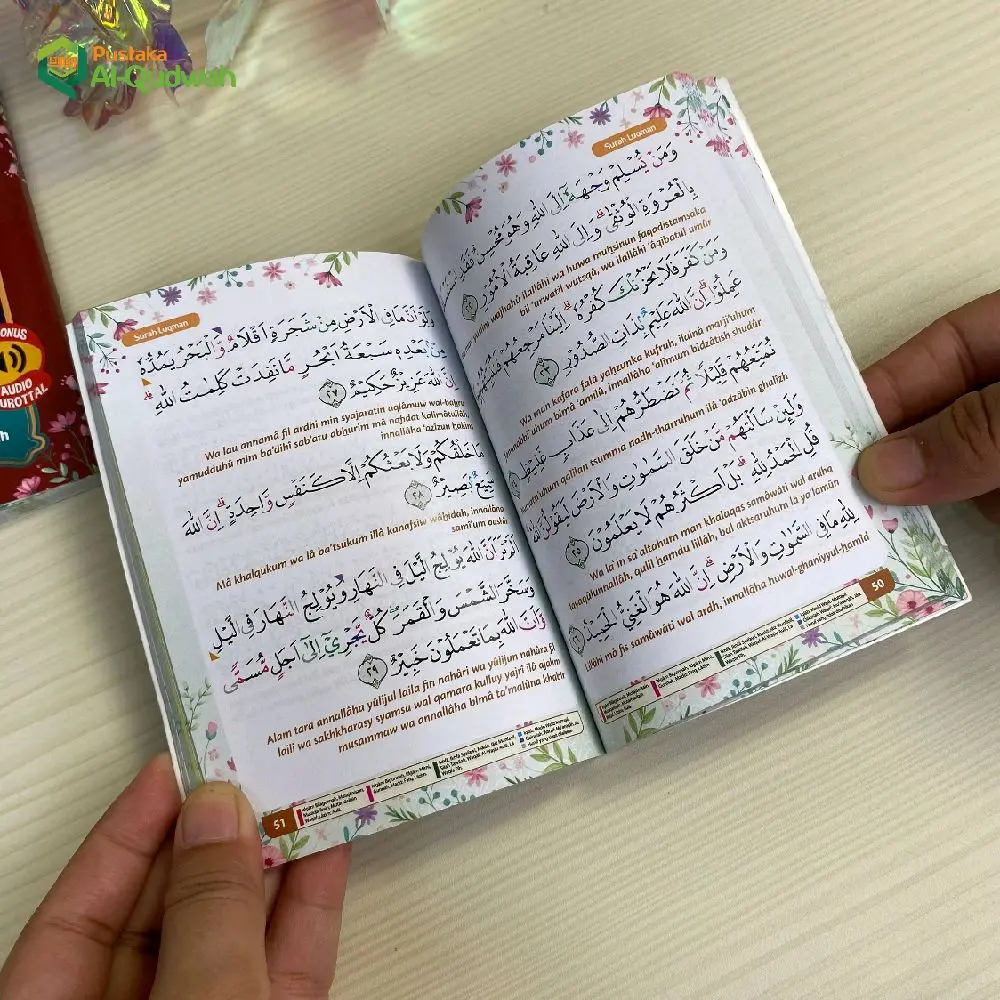 Pustaka
Al-Qudwah
BONUS
AUDIO
MUROTTAL
Surah Luqman
وَمَنْ يُّسْلِمْ وَجْهَهٗٓ اِلَى اللّٰهِ وَهُوَ مُحْسِنٌ فَقَدِ
بِالْعُرْوَةِ الْوُثْقٰىۗ وَاِلَى اللّٰهِ عَاقِبَةُ الْاُمُوْرِ ٢٢
wajhahū ilallāhi wa huwa muḥsinun faqodistamsaka
bil 'urwatil wutsqā, wa ilallāhi 'āqibatul umūr
وَمَنْ كَفَرَ فَلَا يَحْزُنْكَ كُفْرُهٗۗ اِلَيْنَا مَرْجِعُهُمْ فَنُنَبِّئُهُمْ
عَمِلُوْاۗ اِنَّ اللّٰهَ عَلِيْمٌۢ بِذَاتِ الصُّدُوْرِ ٢٣
Wa man kafara falā yaḥzunka kufruh, ilainā marji'uhum
'uhum bimā 'amilū, innallāha 'alīmum bidzātish shudūr
نُمَتِّعُهُمْ قَلِيْلًا ثُمَّ نَضْطَرُّهُمْ اِلٰى عَذَابٍ غَلِيْظٍ
'uhum qalīlan tsumma nadh-tharruhum ilā 'adzābin ghalīzh
وَلَىِٕنْ سَاَلْتَهُمْ مَّنْ خَلَقَ السَّمٰوٰتِ وَالْاَرْضَ لَيَقُوْلُنَّ اللّٰهُ
قُلِ الْحَمْدُ لِلّٰهِۗ بَلْ اَكْثَرُهُمْ لَا يَعْلَمُوْنَ ٢٥
Wa la in sa altahum man khalaqas samāwāti wal ardha
layaqūlunnallāh, qulil ḥamdu lillāh, bal aktsaruhum lā ya'lamūn
لِلّٰهِ مَا فِى السَّمٰوٰتِ وَالْاَرْضِۗ اِنَّ اللّٰهَ هُوَ الْغَنِيُّ الْحَمِيْدُ
Lillāh mā fis samāwāti wal ardh, innallāha huwal-ghaniyyul-ḥamīd
50
Surah Luqman
وَلَوْ اَنَّ مَا فِى الْاَرْضِ مِنْ شَجَرَةٍ اَقْلَامٌ وَّالْبَحْرُ يَمُدُّهٗ
مِنْۢ بَعْدِهٖ سَبْعَةُ اَبْحُرٍ مَّا نَفِدَتْ كَلِمٰتُ اللّٰهِۗ
اِنَّ اللّٰهَ عَزِيْزٌ حَكِيْمٌ ٢٧
Wa lau annamā fil ardhi min syajaratin aqlāmuw wal-baḥru
yamudduhū mim ba'dihī sab'atu abḥurim mā nafidat kalimātullāh,
innallāha 'azīzun ḥakīm
مَا خَلْقُكُمْ وَلَا بَعْثُكُمْ اِلَّا كَنَفْسٍ وَّاحِدَةٍۗ اِنَّ اللّٰهَ
سَمِيْعٌۢ بَصِيْرٌ ٢٨
Mā khalqukum wa lā ba'tsukum illā kanafsiw wāḥidah, innallāha
samī'um
اَلَمْ تَرَ اَنَّ اللّٰهَ يُوْلِجُ الَّيْلَ فِى النَّهَارِ وَيُوْلِجُ النَّهَارَ فِى الَّيْلِ
وَسَخَّرَ الشَّمْسَ وَالْقَمَرَۖ كُلٌّ يَّجْرِيْٓ اِلٰٓى اَجَلٍ مُّسَمًّى
وَّاَنَّ اللّٰهَ بِمَا تَعْمَلُوْنَ خَبِيْرٌ ٢٩
Alam tara annallāhu yūlijul laila fin nahāri wa yūlijun nahāra fil
laili wa sakhkharasy syamsu wal qamara kulluy yajrī ilā ajalim
musammaw wa annallāha bimā ta'malūna khabīr
51